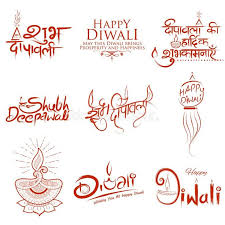 शुभ
दीपावली
HAPPY
DIWALI
MAY THIS DIWALI BRINGS
PROSPERITY AND HAPPINESS
दीपावली की
हार्दिक
शुभकामनाएँ
Shubh
Deepawali
शुभ
दीपावली
HAPPY
DIWALI
Diwali
Wishing You All Happy Diwali
Happy
Diwali